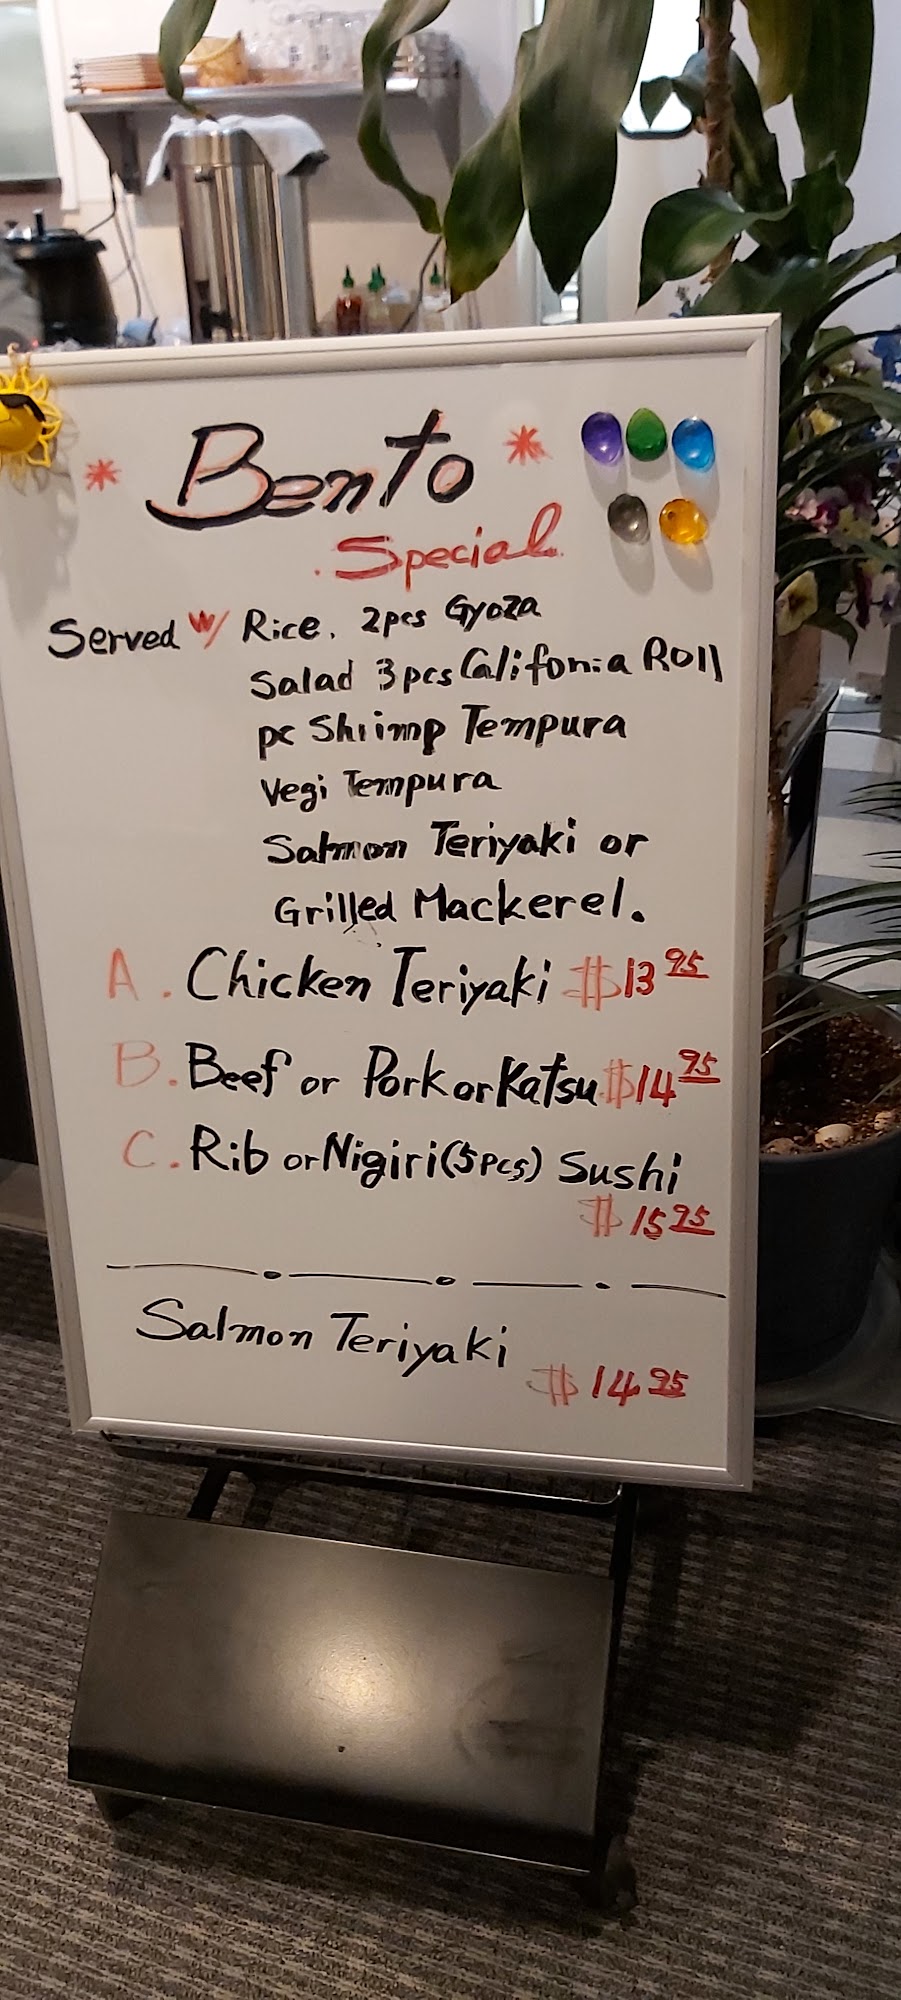 * Bento *
. Special.
Served w/ Rice. 2pcs Gyoza
Salad 3pcs Califonia Roll
pc Shrimp Tempura
Vegi Tempura
Salmon Teriyaki or
Grilled Mackerel.
A. Chicken Teriyaki $13 95
B. Beef or Pork or Katsu $14 95
C. Rib or Nigiri (5pcs) Sushi
$15 95
Salmon Teriyaki
$14 95